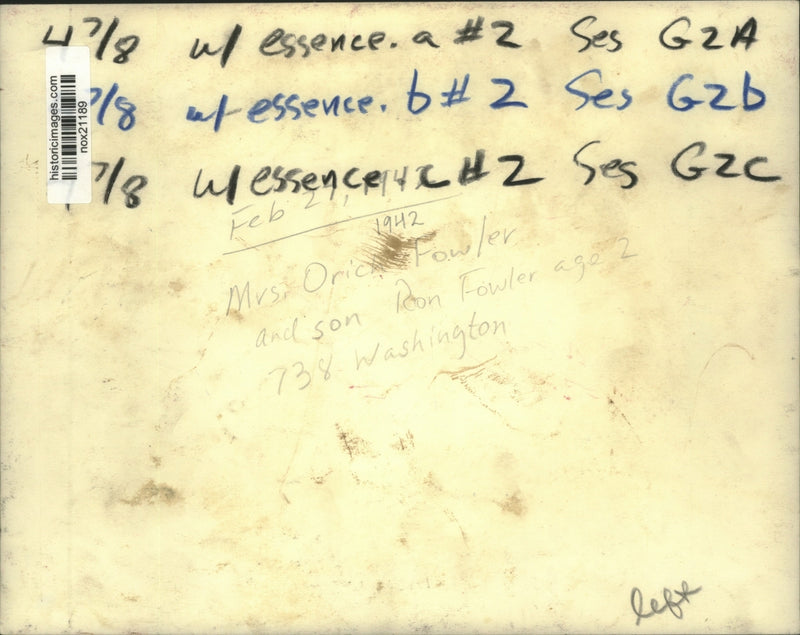 4 7/8 w/ essence. a #2 Ses G2A
7/8 w/ essence. b #2 Ses G2b
7/8 w/ essence c #2 Ses G2C
historicimages.com
nox21189
Feb 27, 1942
1942
Mrs. Fowler
and son Ron Fowler age 2
738 Washington
left